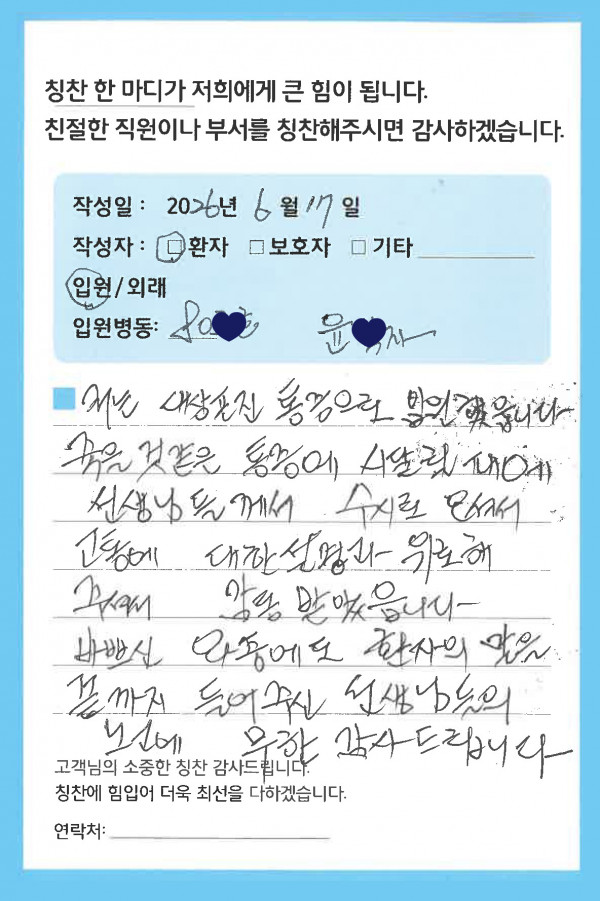 칭찬 한 마디가 저희에게 큰 힘이 됩니다.
친절한 직원이나 부서를 칭찬해주시면 감사하겠습니다.
작성일 : 2026년 6월 17일
작성자 : □환자 □보호자 □기타
입원/외래
입원병동: 호 윤 자
저는 대상포진 통증으로 입원했읍니다
죽을 것같은 통증에 시달릴 때에
선생님들께서 수시로 오셔서
고통에 대한 설명과 위로해
주셔서 감동 받았읍니다
바쁘신 와중에도 환자의 말을
끝까지 들어주신 선생님들의
노고에 무한 감사드립니다
고객님의 소중한 칭찬 감사드립니다.
칭찬에 힘입어 더욱 최선을 다하겠습니다.
연락처: